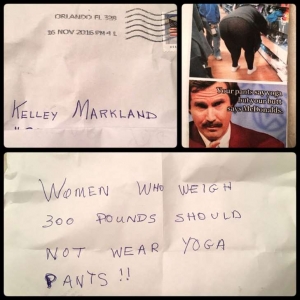 ORLANDO FL 328
16 NOV 2016 PM 4 L
KELLEY MARKLAND
Your pants say yoga
but your butt
says McDonalds.
WOMEN WHO WEIGH
300 POUNDS SHOULD
NOT WEAR YOGA
PANTS!!